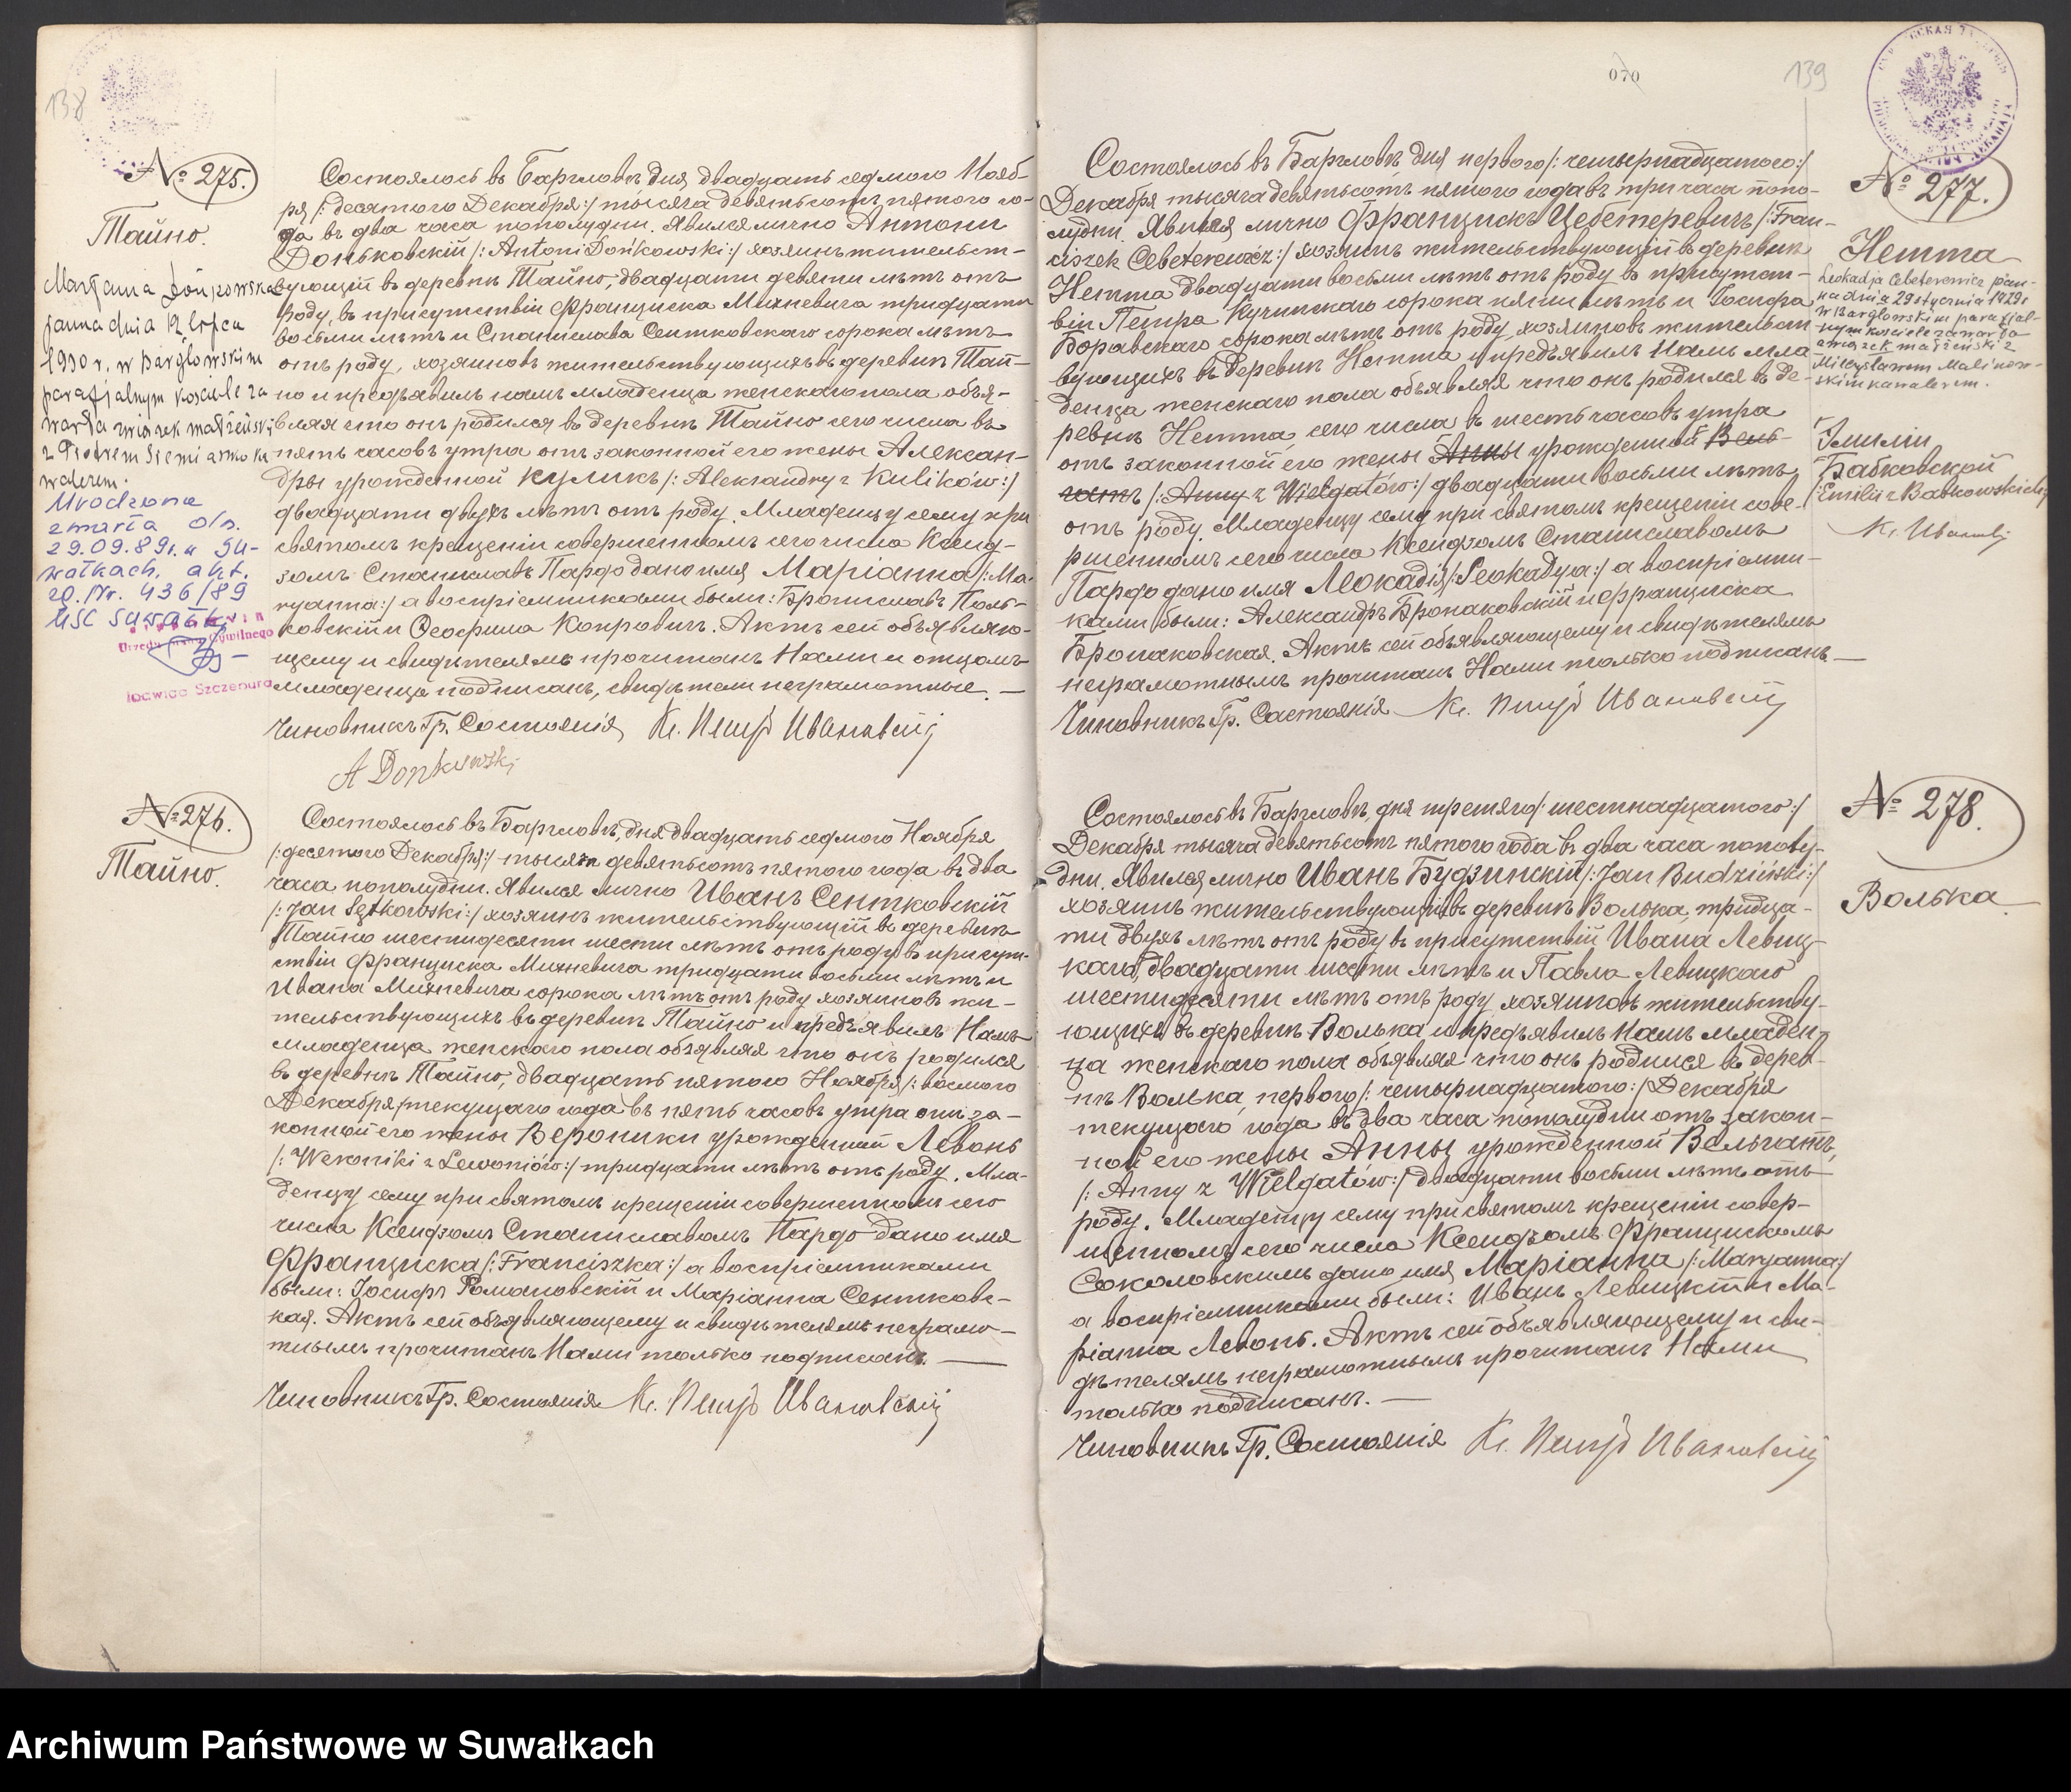 138
№ 275.
Тайно.
Marjanna Dońkowska
panna dnia 12 lipca
1930 r. w Bargłowskim
parafjalnym kościele za
warła związek małżeński
z Piotrem Siemiaszko ka
walerem.
Urodzona
zmarła dn.
29.09.89r. w Su-
wałkach. akt.
zg. Nr. 436/89
USC Suwałki
Urzędu Stanu Cywilnego
Jadwiga Szczepura
Состоялось въ Баргловѣ дня двадцать седмого Нояб-
ря /: десятого Декабря :/ тысяча девятьсотъ пятого го-
да въ два часа пополудни. Явился лично Антони
Доньковскій /: Antoni Dońkowski :/ хозяинъ жительст-
вующій въ деревнѣ Тайно, двадцати девяти лѣтъ отъ
роду, въ присутствіи Франциска Михневича тридцати
восьми лѣтъ и Станислава Сентковскаго сорока лѣтъ
отъ роду, хозяиновъ жительствующихъ въ деревнѣ Тай-
но и предъявилъ намъ младенца женскаго пола объя-
вляя что онъ родился въ деревнѣ Тайно сего числа въ
пять часовъ утра отъ законной его жены Алексан-
дры урожденной Куликъ /: Aleksandry z Kulików :/
двадцати двухъ лѣтъ отъ роду. Младенцу сему при
святомъ крещеніи совершенномъ сего числа Ксенд-
зомъ Станиславъ Пардо дано имя Маріанна /: Ma-
ryanna :/ а воспріемниками были: Брониславъ Поль-
ковскій и Ѳеофила Копровичъ. Актъ сей объявляю-
щему и свидѣтелямъ прочитанъ Нами и отцомъ
младенца подписанъ, свидѣтели неграмотные. —
Чиновникъ Гр. Состоянія Кс. Петръ Ивановскій
A Donkowski
№ 276.
Тайно.
Состоялось въ Баргловѣ, дня двадцать седмого Ноября
/: десятого Декабря :/ тысяча девятьсотъ пятого года въ два
часа пополудни. Явился лично Иванъ Сентковскій
/: Jan Sętkowski :/ хозяинъ жительствующій въ деревнѣ
Тайно шестидесяти шести лѣтъ отъ роду въ присут-
ствіи Франциска Михневича тридцати восьми лѣтъ и
Ивана Михневича сорока лѣтъ отъ роду хозяиновъ жи-
тельствующихъ въ деревнѣ Тайно и предъявилъ Намъ
младенца женскаго пола объявляя что онъ родился
въ деревнѣ Тайно, двадцать пятого Ноября /: восмого
Декабря / текущаго года въ пять часовъ утра отъ за-
конной его жены Вероники урожденной Левонь
/: Weroniki z Lewoniów :/ тридцати лѣтъ отъ роду. Мла-
денцу сему при святомъ крещеніи совершенномъ сего
числа Ксендзомъ Станиславомъ Пардо дано имя
Франциска /: Franciszka :/ а воспріемниками
были: Іосифъ Романовскій и Маріанна Сентковс-
кая. Актъ сей объявляющему и свидѣтелямъ неграмо-
тнымъ прочитанъ Нами только подписанъ. —
Чиновникъ Гр. Состоянія Кс. Петръ Ивановскій
070
139
№ 277.
Нетта
Leokadja Cebeterewicz pan-
na dnia 29 stycznia 1929r
w Bargłowskim parafjal-
nym kościele zawarła
związek małżeński z
Mieczysławem Malinow-
skim kawalerem.
Эмиліи
Бабковской
/:Emilii z Babkowskich:/
Кс. Ивановскій
Состоялось въ Баргловѣ, дня первого /: четырнадцатого :/
Декабря тысяча девятьсотъ пятого года въ три часа попо-
лудни. Явился лично Францискъ Цебетеревичъ /: Fran-
ciszek Cebeterewicz :/ хозяинъ жительствующій въ деревнѣ
Нетта двадцати восьми лѣтъ отъ роду въ присутст-
віи Петра Кучинскаго сорока пяти лѣтъ и Іосифа
Боравскаго сорока лѣтъ отъ роду, хозяиновъ жительст
вующихъ въ деревнѣ Нетта и предъявилъ Намъ мла
денца женскаго пола объявляя что онъ родился въ де-
ревнѣ Нетта, сего числа въ шесть часовъ утра
отъ законной его жены Анны урожденной Вель-
гатъ /: Anny z Wielgatów :/ двадцати восьми лѣтъ
отъ роду. Младенцу сему при святомъ крещеніи сове-
ршенномъ сего числа Ксендзомъ Станиславомъ
Пардо дано имя Леокадія /: Leokadya :/ а воспріемни-
ками были: Александръ Бронаковскій и Франциска
Бронаковская. Актъ сей объявляющему и свидѣтелямъ
неграмотнымъ прочитанъ Нами только подписанъ. —
Чиновникъ Гр. Состоянія Кс. Петръ Ивановскій
№ 278.
Волька
Состоялось въ Баргловѣ, дня третяго /: шестнадцатого :/
Декабря тысяча девятьсотъ пятого года въ два часа пополу-
дни. Явился лично Иванъ Будзинскій /: Jan Budziński :/
хозяинъ жительствующій въ деревнѣ Волька, тридца-
ти двухъ лѣтъ отъ роду въ присутствіи Ивана Левиц-
каго, двадцати шести лѣтъ и Павла Левицкаго
шестидесяти лѣтъ отъ роду хозяиновъ жительству-
ющихъ въ деревнѣ Волька и предъявилъ Намъ младен-
ца женскаго пола объявляя что онъ родился въ дерев-
нѣ Волька, первого /: четырнадцатого :/ Декабря
текущаго года въ два часа пополудни отъ закон-
ной его жены Анны урожденной Вельгатъ,
/: Anny z Wielgatów :/ двадцати восьми лѣтъ отъ
роду. Младенцу сему при святомъ крещеніи совер-
шенномъ сего числа Ксендзомъ Францискомъ
Соколовскимъ дано имя Маріанна /: Maryanna :/
а воспріемниками были: Иванъ Левицкій и Ма-
ріанна Левонь. Актъ сей объявляющему и сви-
дѣтелямъ неграмотнымъ прочитанъ Нами
только подписанъ. —
Чиновникъ Гр. Состоянія Кс. Петръ Ивановскій
Archiwum Państwowe w Suwałkach